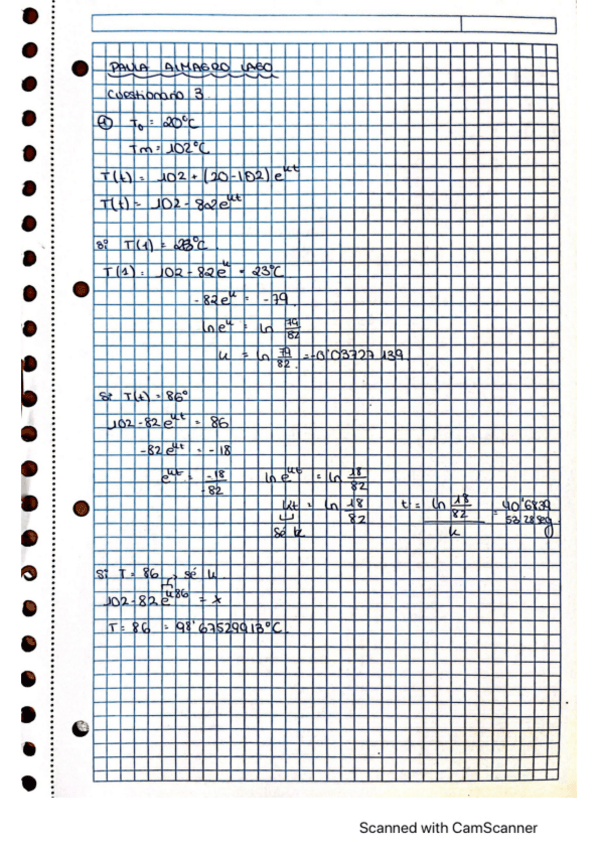 PAULA ALMAGRO LAGO
Cuestionario 3.
① T₀ = 20°C
Tm = 102°C
T(t) = 102 + (20-102) e^kt
T(t) = 102 - 82e^kt
Si T(1) = 23°C.
T(1) = 102 - 82e^k = 23°C
-82e^k = -79.
ln e^k = ln 79/82
k = ln 79/82 = -0'03727139.
Si T(t) = 86°
102 - 82e^kt = 86
-82e^kt = -18
e^kt = -18/-82 ln e^kt = ln 18/82
kt = ln 18/82 t = ln 18/82 / k = 40'6839
Sé k
Si T = 86 → sé k.
102 - 82e^k86 = x
T = 86 = 98'67529913°C.
Scanned with CamScanner